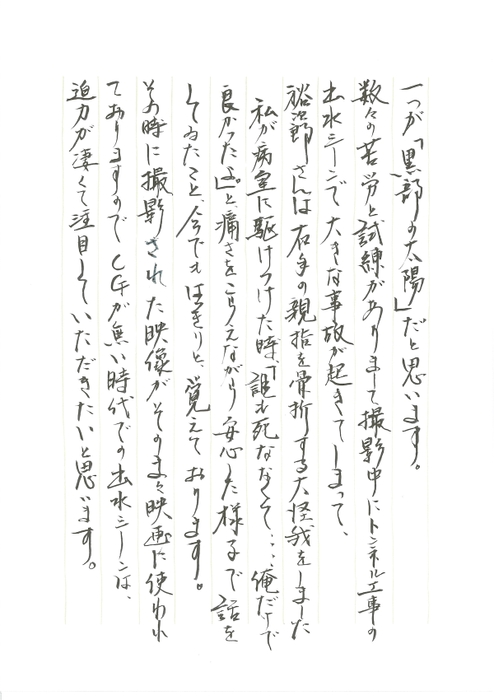 一つが「黒部の太陽」だと思います。
数々の苦労と試練がありまして撮影中にトンネル工事の
出水シーンで大きな事故が起きてしまって、
裕次郎さんは右手の親指を骨折する大怪我をしました
私が病室に駆けつけた時、「誰も死ななくて…、俺だけで
良かったよ」。と痛さをこらえながら安心した様子で話を
してゐたこと、今でもはっきりと、覚えております。
その時に撮影された映像がそのまま映画に使われ
ておりますのでCGが無い時代での出水シーンは、
迫力が凄くて注目していただきたいと思います。